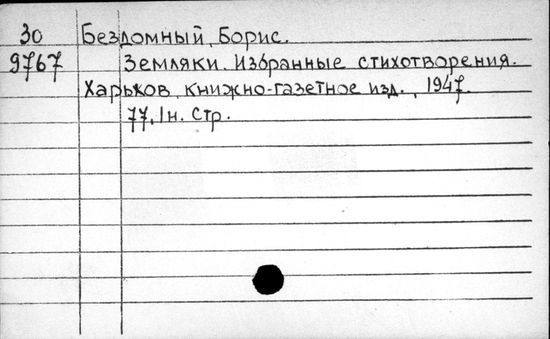 30 Бездомный, Борис.
9767 Земляки. Избранные стихотворения.
Харьков, книжно-газетное изд., 1947.
77, 1н. стр.